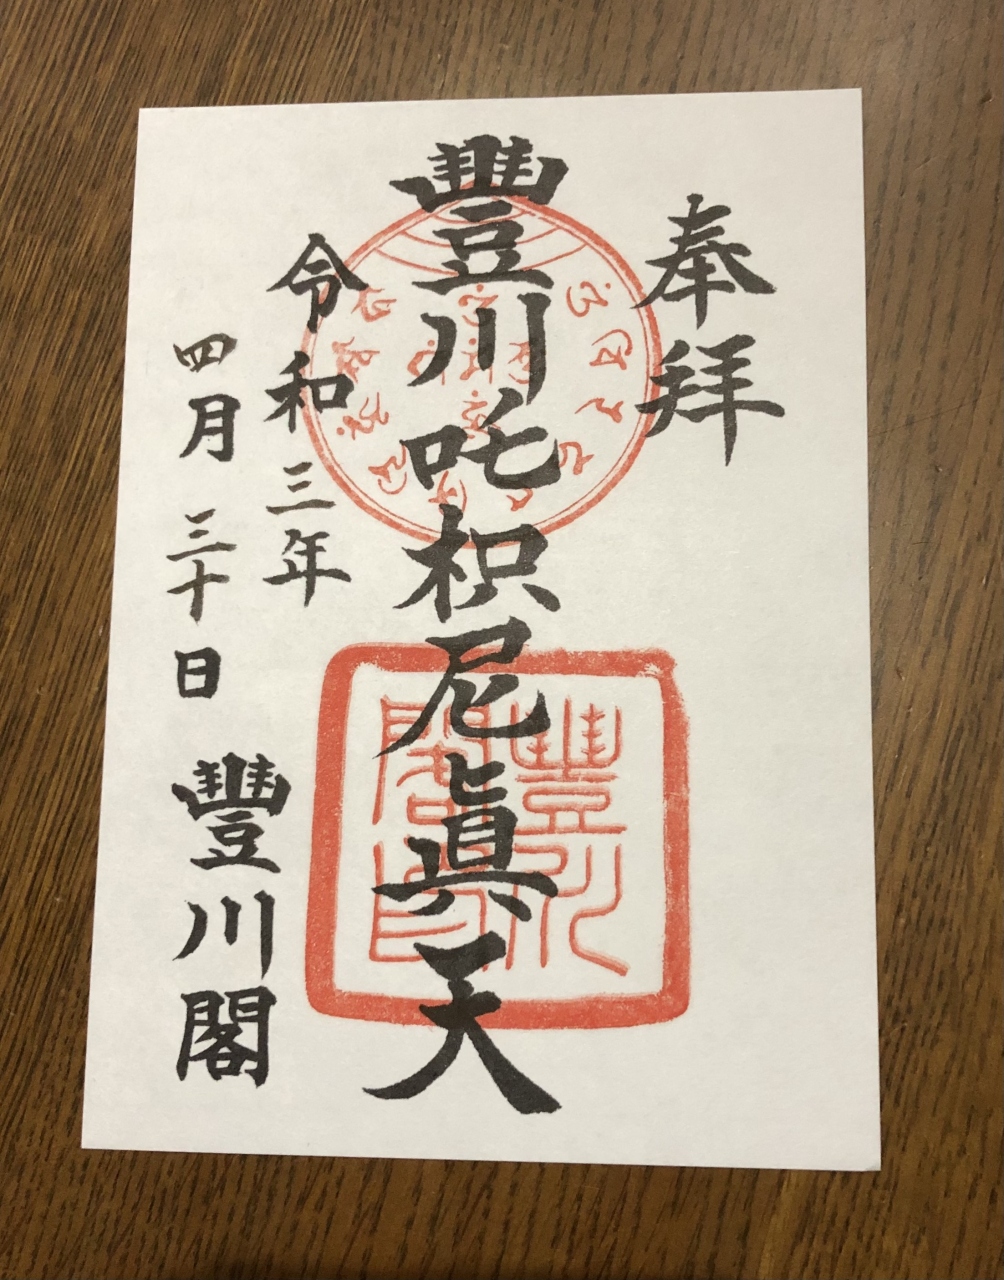 奉拝
豐川吒枳尼眞天
令和三年
四月三十日
豐川閣
豐川閣印